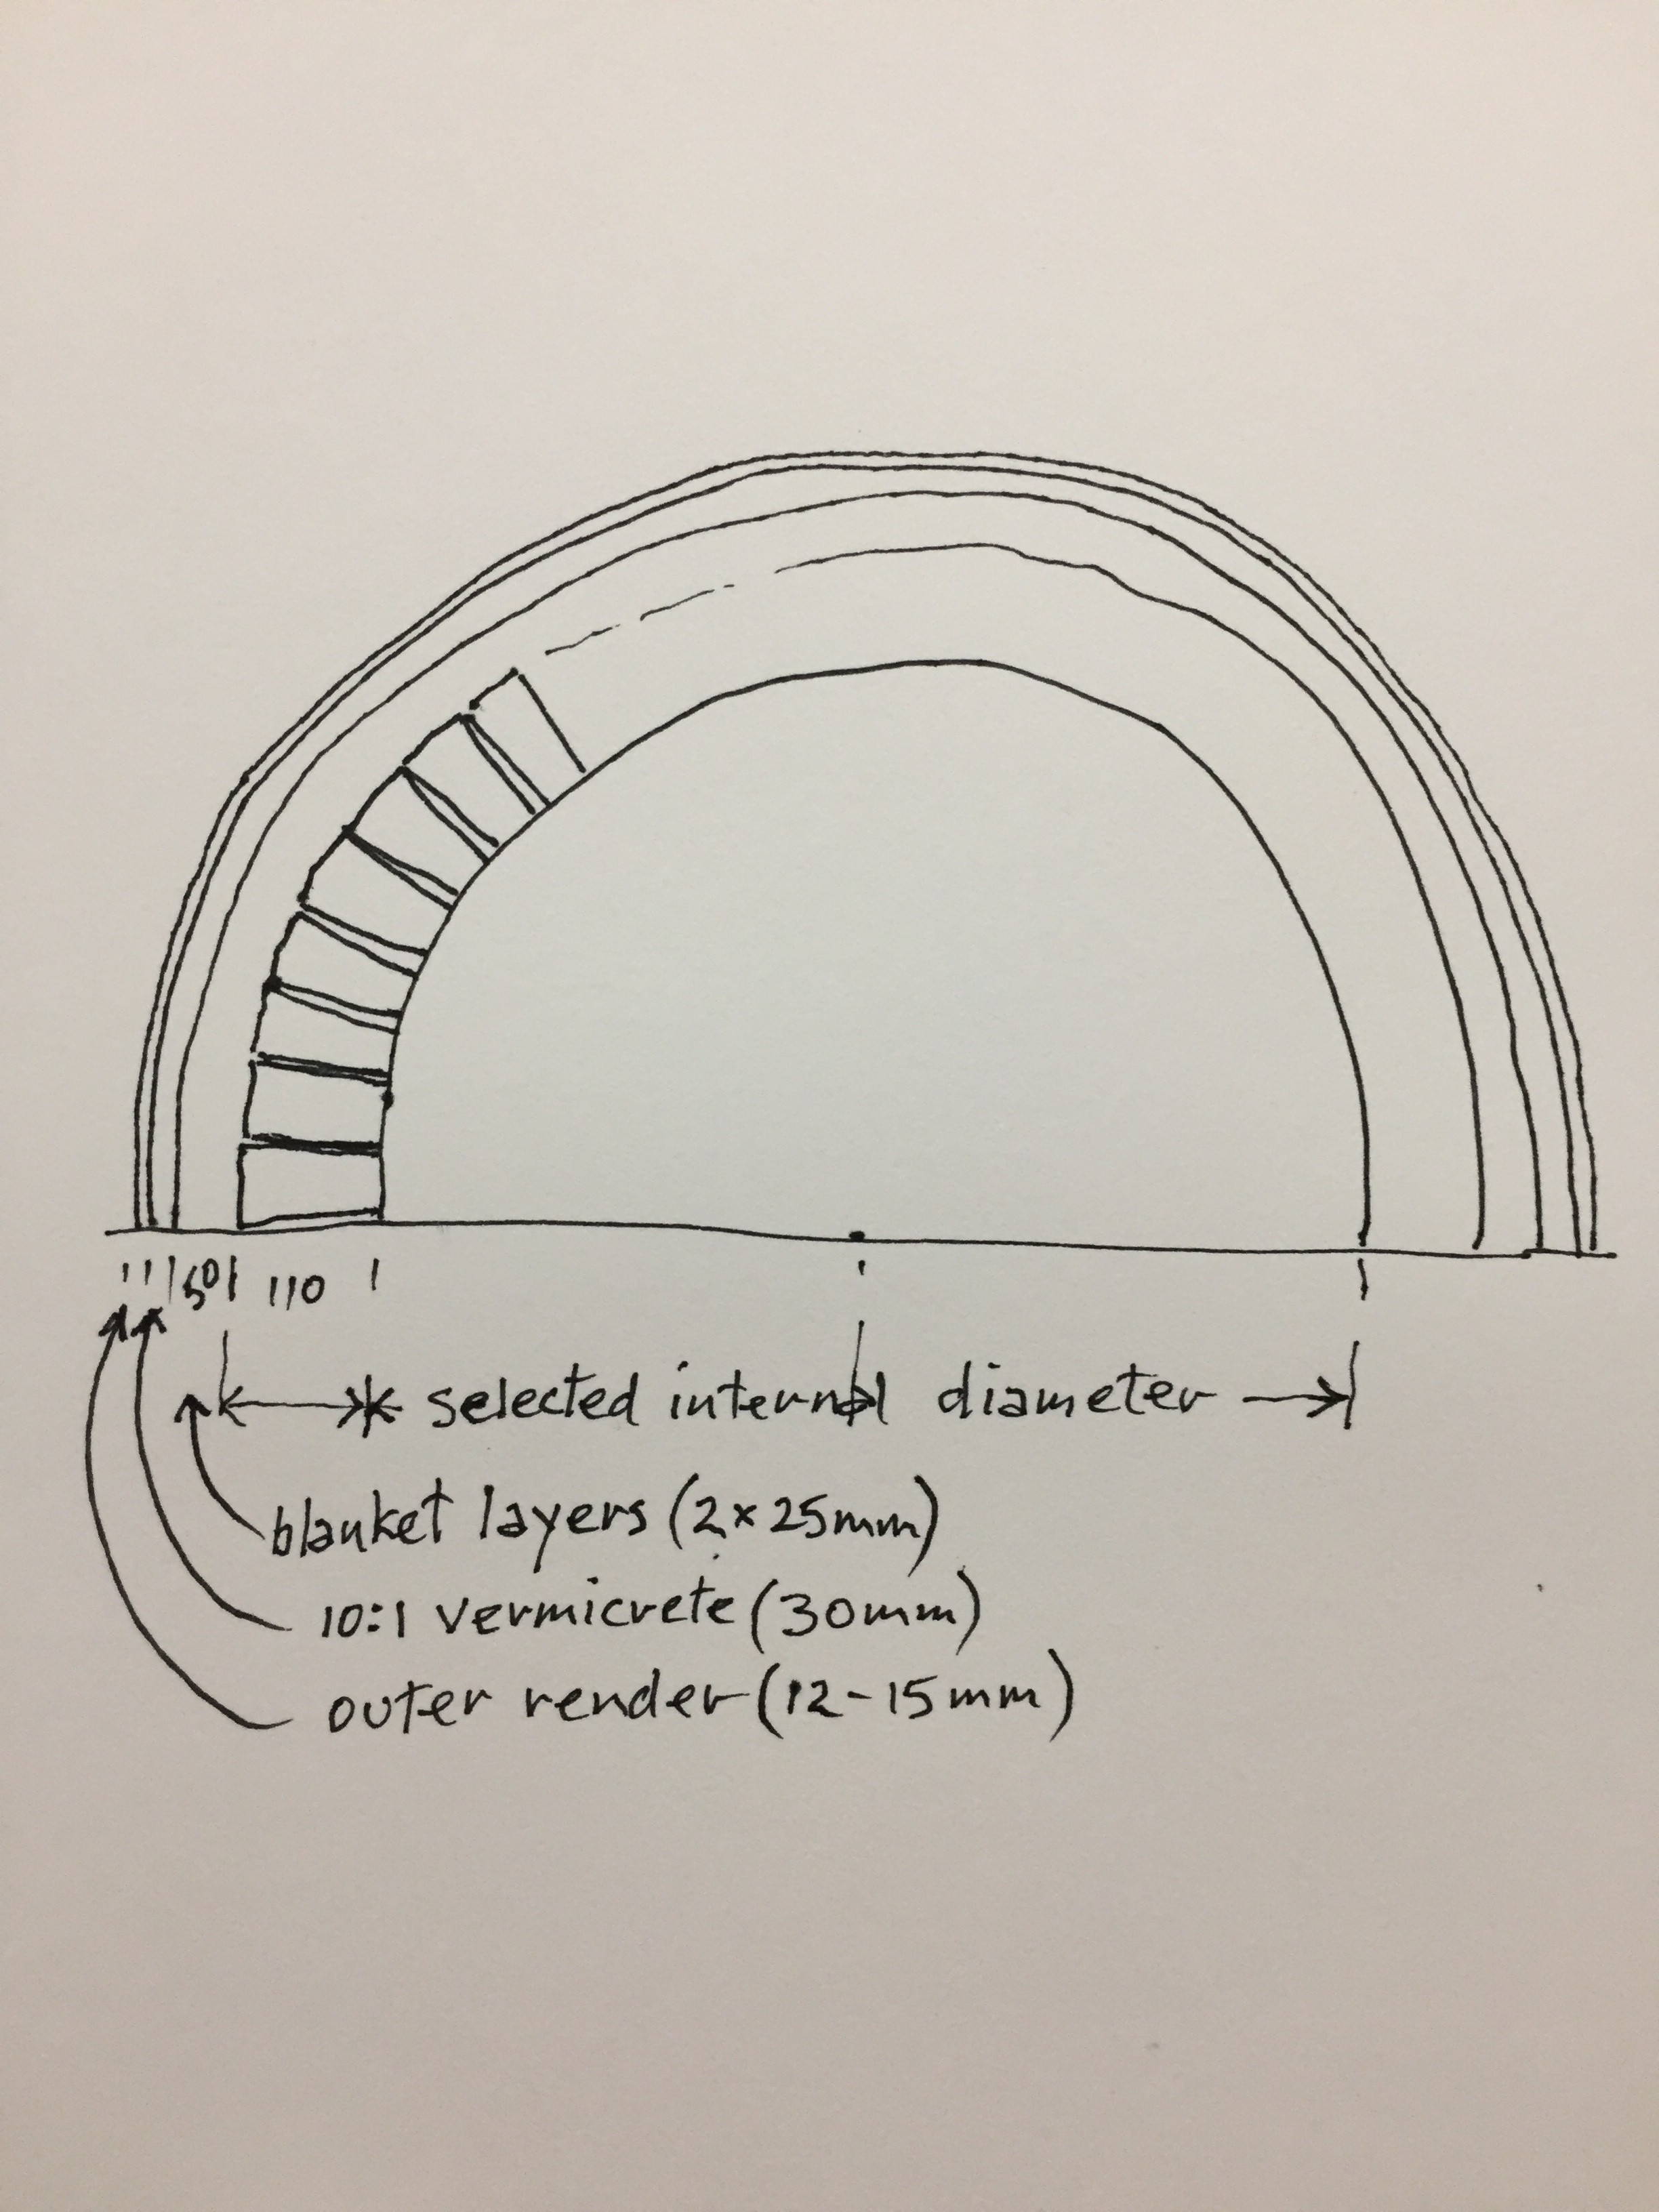 50 110
selected internal diameter
blanket layers (2x25mm)
10:1 vermicrete (30mm)
outer render (12-15mm)